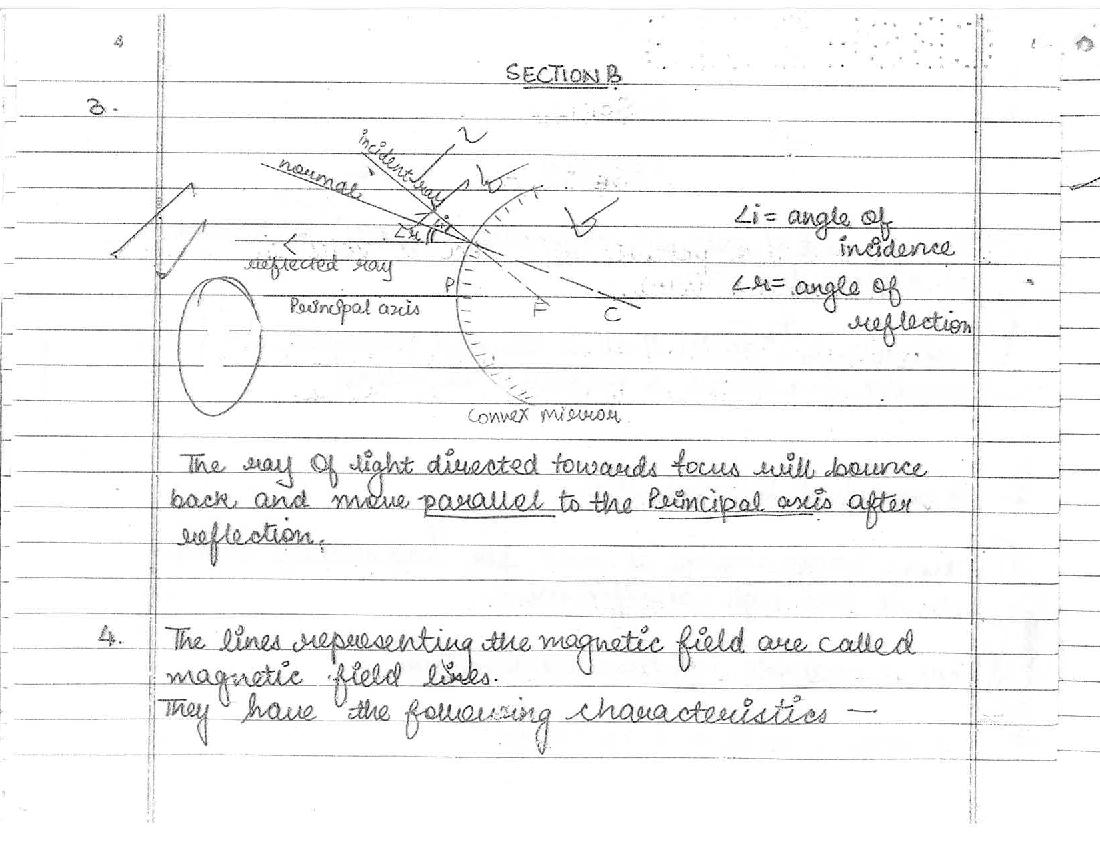 SECTION B
3.
incident ray
normal
∠i
∠r
reflected ray
P
Principal axis
F
C
Convex mirror
∠i = angle of
incidence
∠r = angle of
reflection
The ray Of light directed towards focus will bounce
back and move parallel to the Principal axis after
reflection.
4.
The lines representing the magnetic field are called
magnetic field lines.
They have the following characteristics —